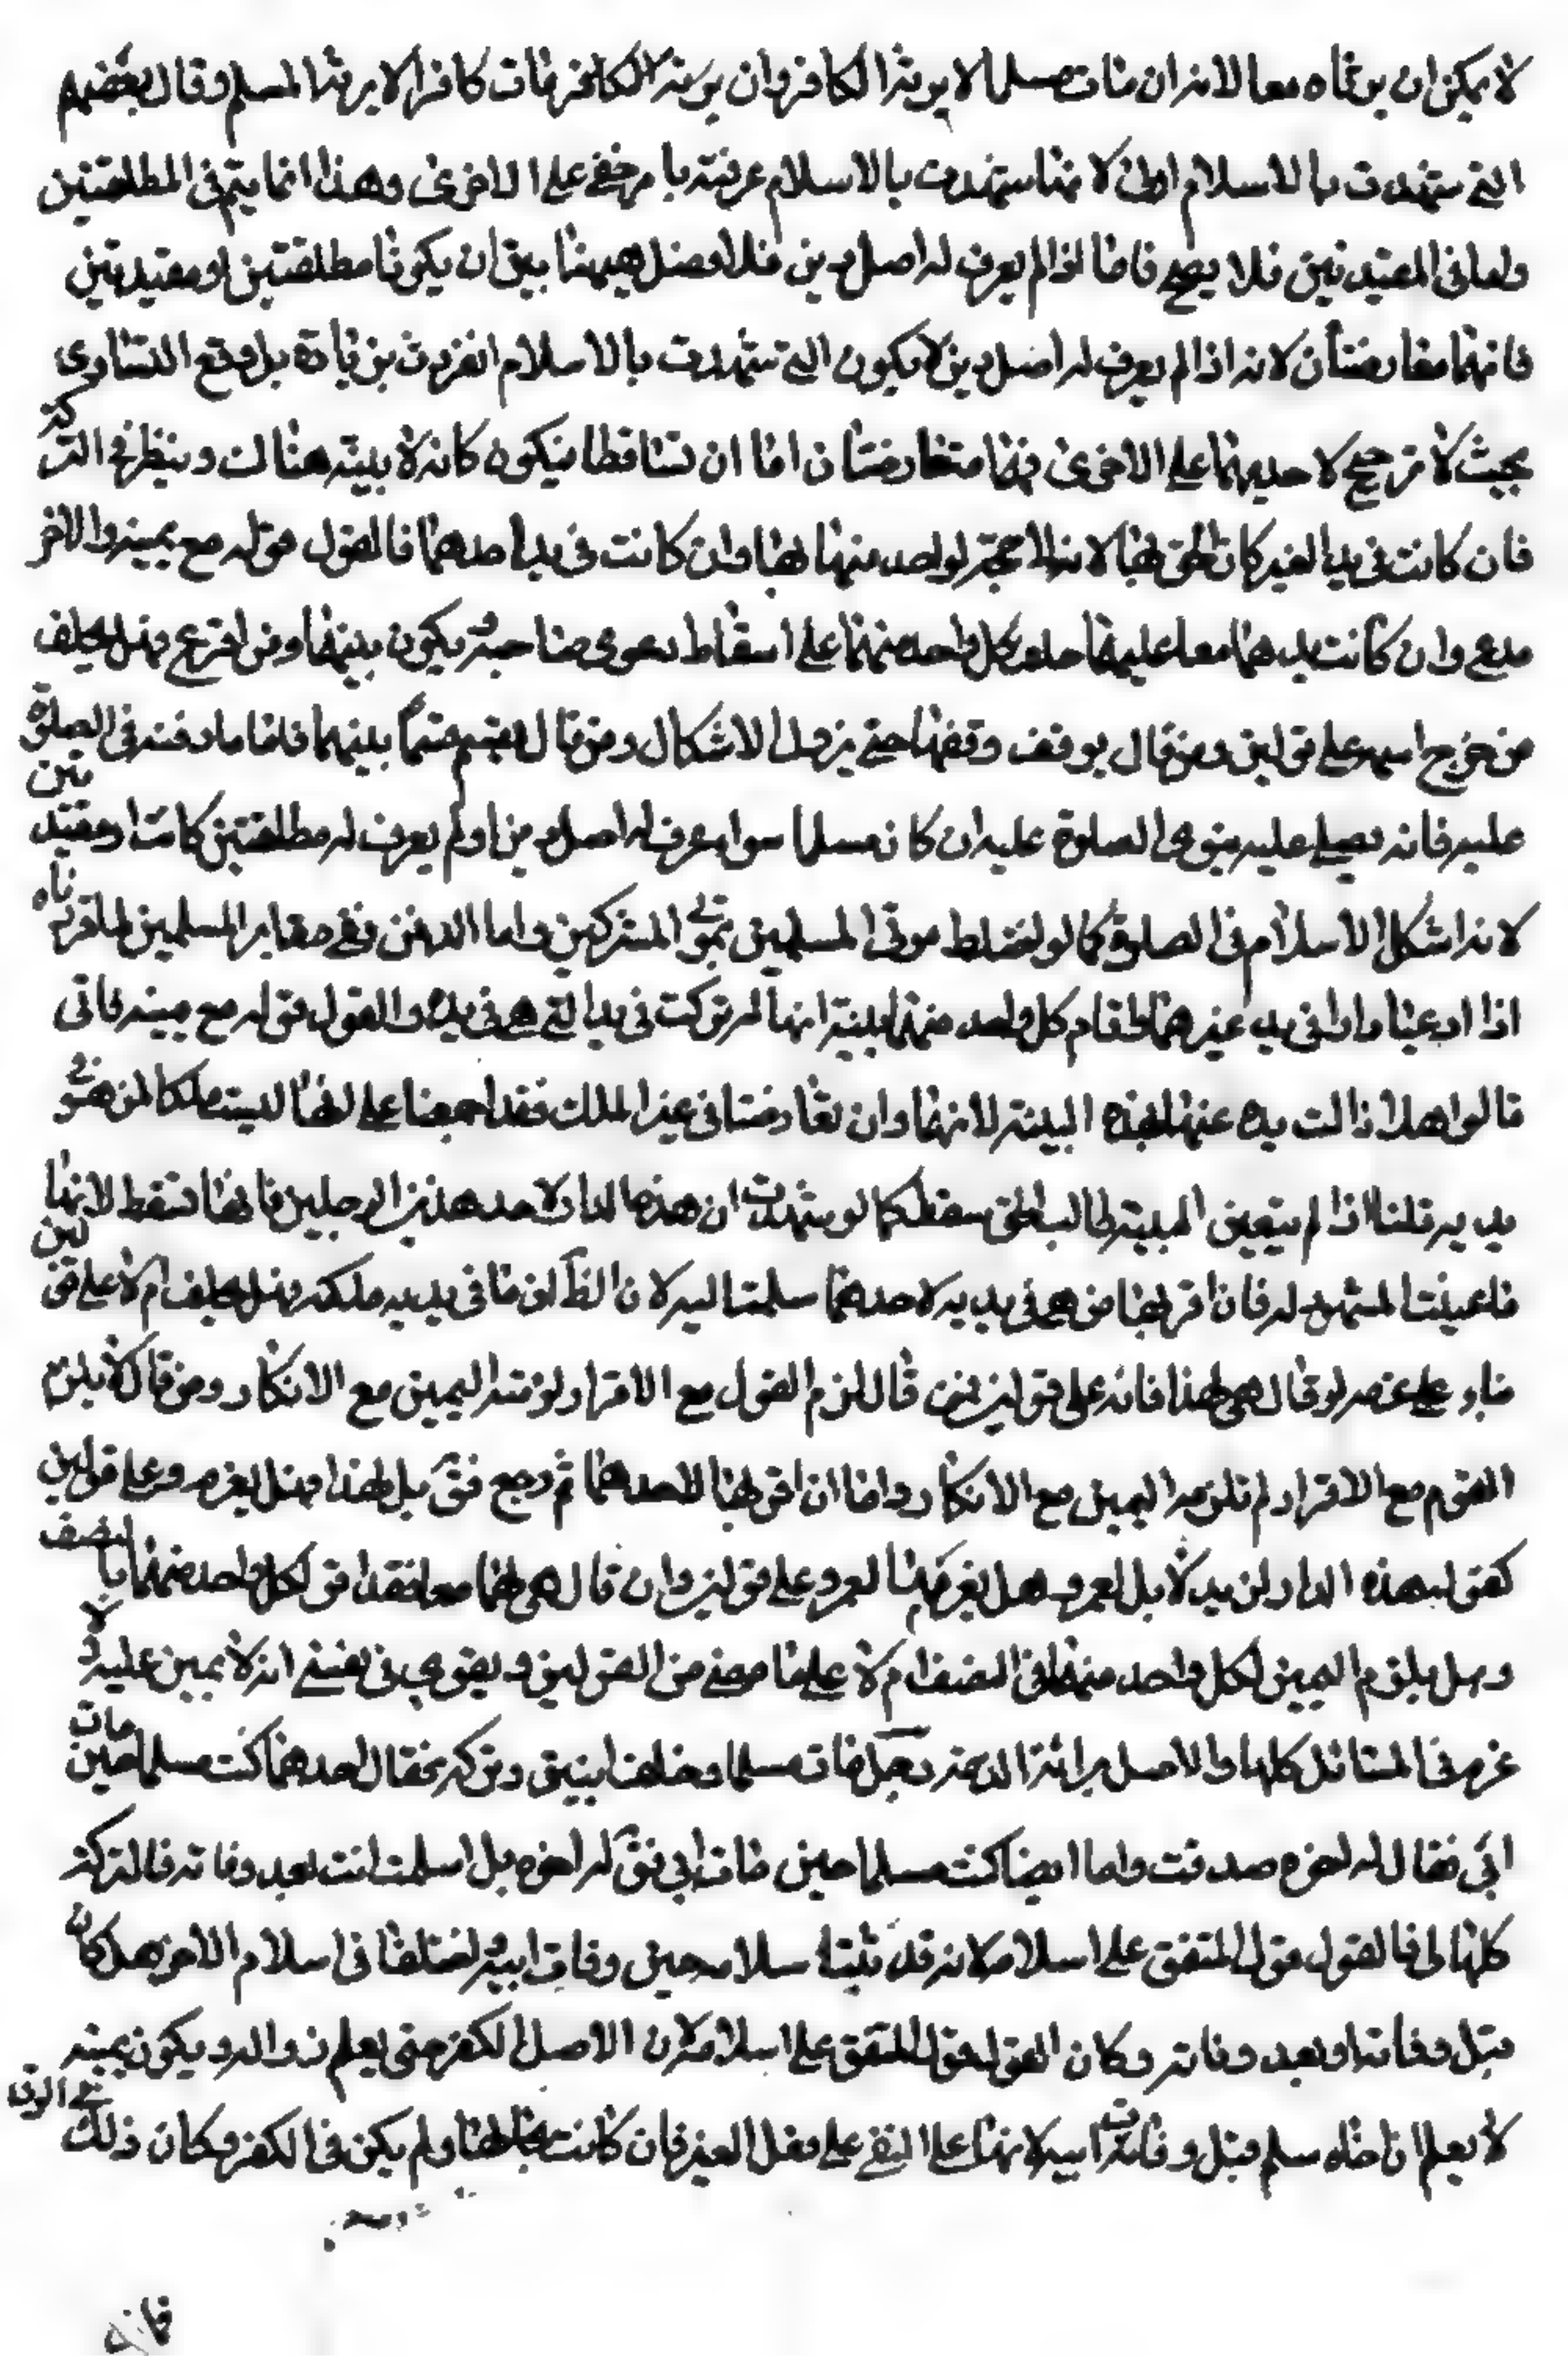 لا يمكن ان يرثاه معا لانه ان مات مسلما لا يرثه الكافر وان يرثه الكافر مات كافرا لا يرثه المسلم وقال بعضهم
التي شهدت بالاسلام اولى لانها شهدت بالاسلام عرفته با مر خفي على الاخرى وهذا انما يتم في المطلقتين
واما في المقيدتين فلا يصح فاما اذا لم يعرف له اصل دين فلا فضل ههنا بين ان يكونا مطلقتين او مقيدتين
فانهما متعارضتان لانه اذا لم يعرف له اصل دين لا يكون التي شهدت بالاسلام انفردت بزيادة بل وقع التساوى
بحيث لا ترجيح لاحديهما على الاخرى فهما متعارضتان اما ان تساقطا فيكون كانه لا بينة هناك وينظر في التركة
فان كانت في يد الغير كان الحق لها لانه لا حجة لواحد منهما بها وان كانت في يد احدهما فالقول قوله مع يمينه والاخر
مدع وان كانت يدهما معا عليها حلف كل واحد منهما على اسقاط دعوى صاحبه ويكون بينهما ومن اقرع فهل يحلف
من خرج اسمه على قولين ومن قال يوقف وقفها حتى يزول الاشكال ومن قال يقسم قسما بينهما فاما ما دفنه في الصلوة
عليه فانه يصلى عليه ينوى الصلوة عليه ان كان مسلما سواء عرف له اصل دين او لم يعرف له مطلقتين كانتا او مقيدتين
لانه اشكل الاسلام في الصلوة كما لو اختلط موتى المسلمين بموتى المشركين واما الدفن ففي مقابر المسلمين لما قررناه
اذا ادعيا دارا في يد غيرهما فاقام كل واحد منهما بينة انها له تركت في يد التي هي في يده والقول قوله مع يمينه فان
قالوا هلا زالت يده عنها لهذه البينة لانهما وان تعارضتا في عين الملك فقد اجمعنا على انها ليست ملكا لمن هي في
يديه قلنا اذا لم يتعين البينة لطالب الحق سقط كما لو شهدت ان هذه الدار لاحد هذين الرجلين فانها تسقط لانها
ما عينت المشهود له فان اقر بها من هي في يديه لاحدهما سلمت اليه لان الظاهر ان ما في يديه ملكه وهل يحلف ام لا على قولين
بناء على غرمه لو قال هي لهذا فانه على قولين فمن قال لزم القول مع الاقرار لزمته اليمين مع الانكار ومن قال لا يلزم
الغرم مع الاقرار لم تلزمه اليمين مع الانكار واما ان اقر بها لاحدهما ثم رجع فق بل لهذا فهل يغرم وعلى قولين
كقوله هذه الدار لزيد لا بل لعمرو هل يغرمها لعمرو على قولين وان قال هي لهما معا فقد اقر لكل واحد منهما بالنصف
وهل يلزم اليمين لكل واحد منهما في النصف ام لا على ما مضى من القولين ويقوى في نفسي انه لا يمين عليه ولا
غرم في المسائل كلها والاصل برائة الذمة رجل مات مسلما وخلف ابنين وتركة فقال احدهما كنت مسلما حين مات
ابي فقال له اخوه صدقت واما ايضا كنت مسلما حين مات ابي فق له اخوه بل اسلمت انت بعد وفاته فالتركة
كلها لى فالقول قول المتفق على اسلامه لانه قد ثبت اسلامه حين وفات ابيه واختلفا في اسلام الاخر هل كان
قبل وفاته او بعد وفاته وكان القول قول المتفق على اسلامه لان الاصل الكفر حتى يعلم زواله ويكون يمينه
لا يعلم ان اخاه اسلم قبل وفات ابيه لانها على النفي على فعل الغير فان كانت بحالها ولم يكن في الكفر وكان ذلك في الرق
فانه